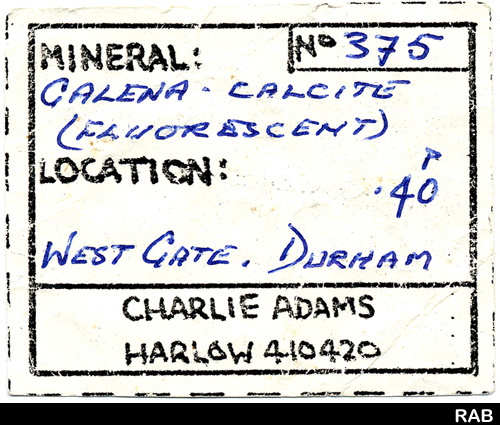 MINERAL: No 375
GALENA - CALCITE
(FLUORESCENT)
LOCATION:
.40P
WEST GATE. DURHAM
CHARLIE ADAMS
HARLOW 410420
RAB